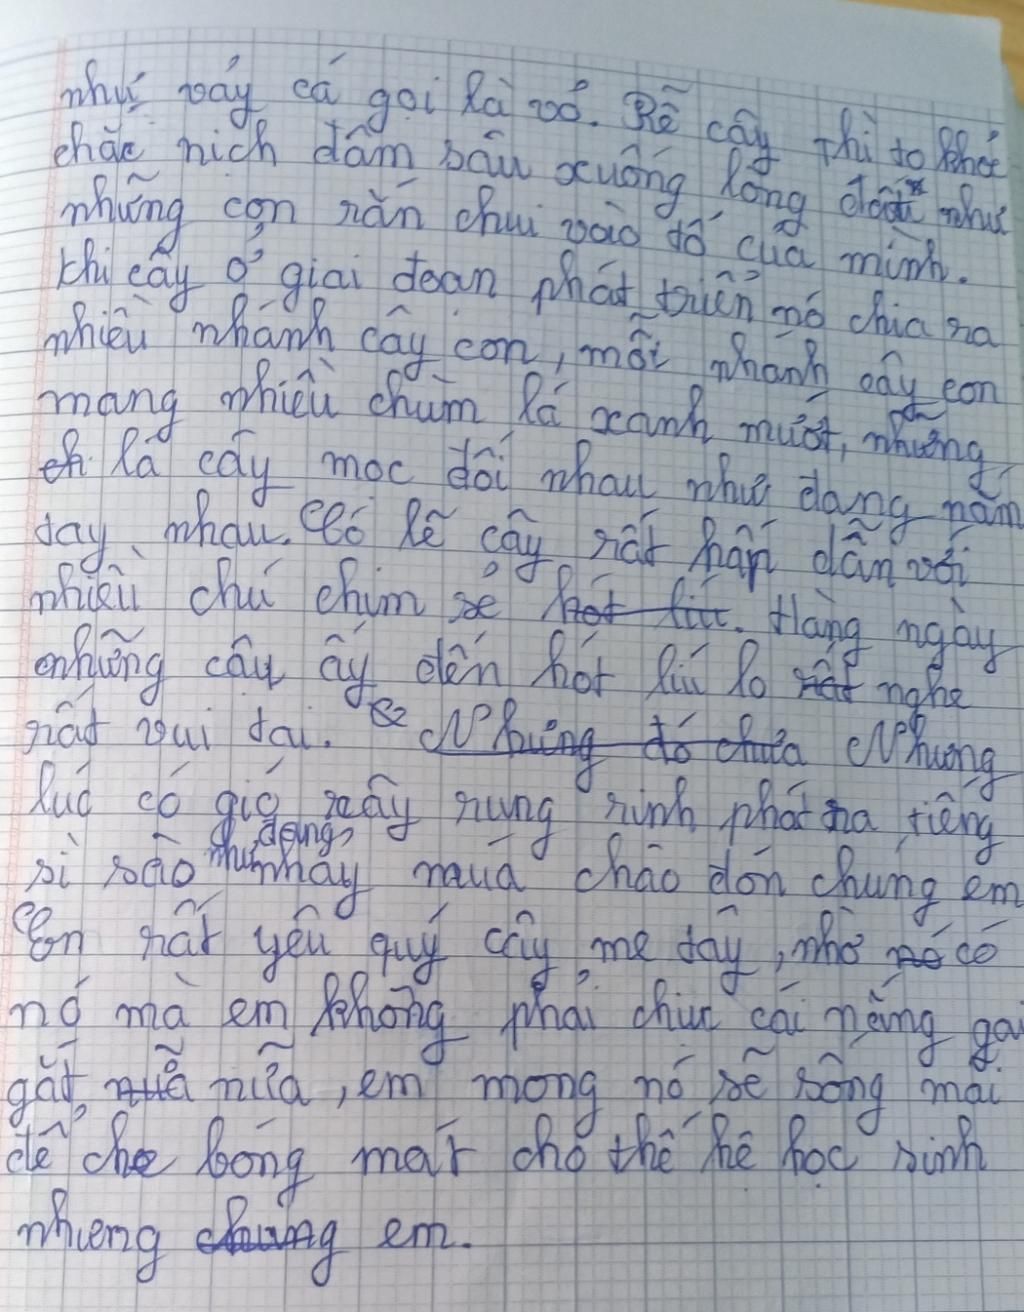 như vảy cá gọi là vỏ. Rễ cây thì to khỏe
chắc nịch đâm sâu xuống lòng đất như
những con rắn chui vào tổ của mình.
Khi cây ở giai đoạn phát triển nó chia ra
nhiều nhánh cây con, mỗi nhánh cây con
mang nhiều chùm lá xanh mướt, những
lá cây mọc đối nhau như đang nắm
tay nhau. Có lẽ cây rất hấp dẫn với
nhiều chú chim sẻ hót líu. Hàng ngày
những cậu ấy đến hót líu lo rất nghe
rất vui tai. Nhưng đó chưa Những
lúc có gió cây rung rinh phát ra tiếng
rì rào như đang nhảy múa chào đón chúng em
Em rất yêu quý cây me tây, nhờ nó có
nó mà em không phải chịu cái nắng gay
gắt nữa, em mong nó sẽ sống mãi
để che bóng mát cho thế hệ học sinh
nhưng chúng em.